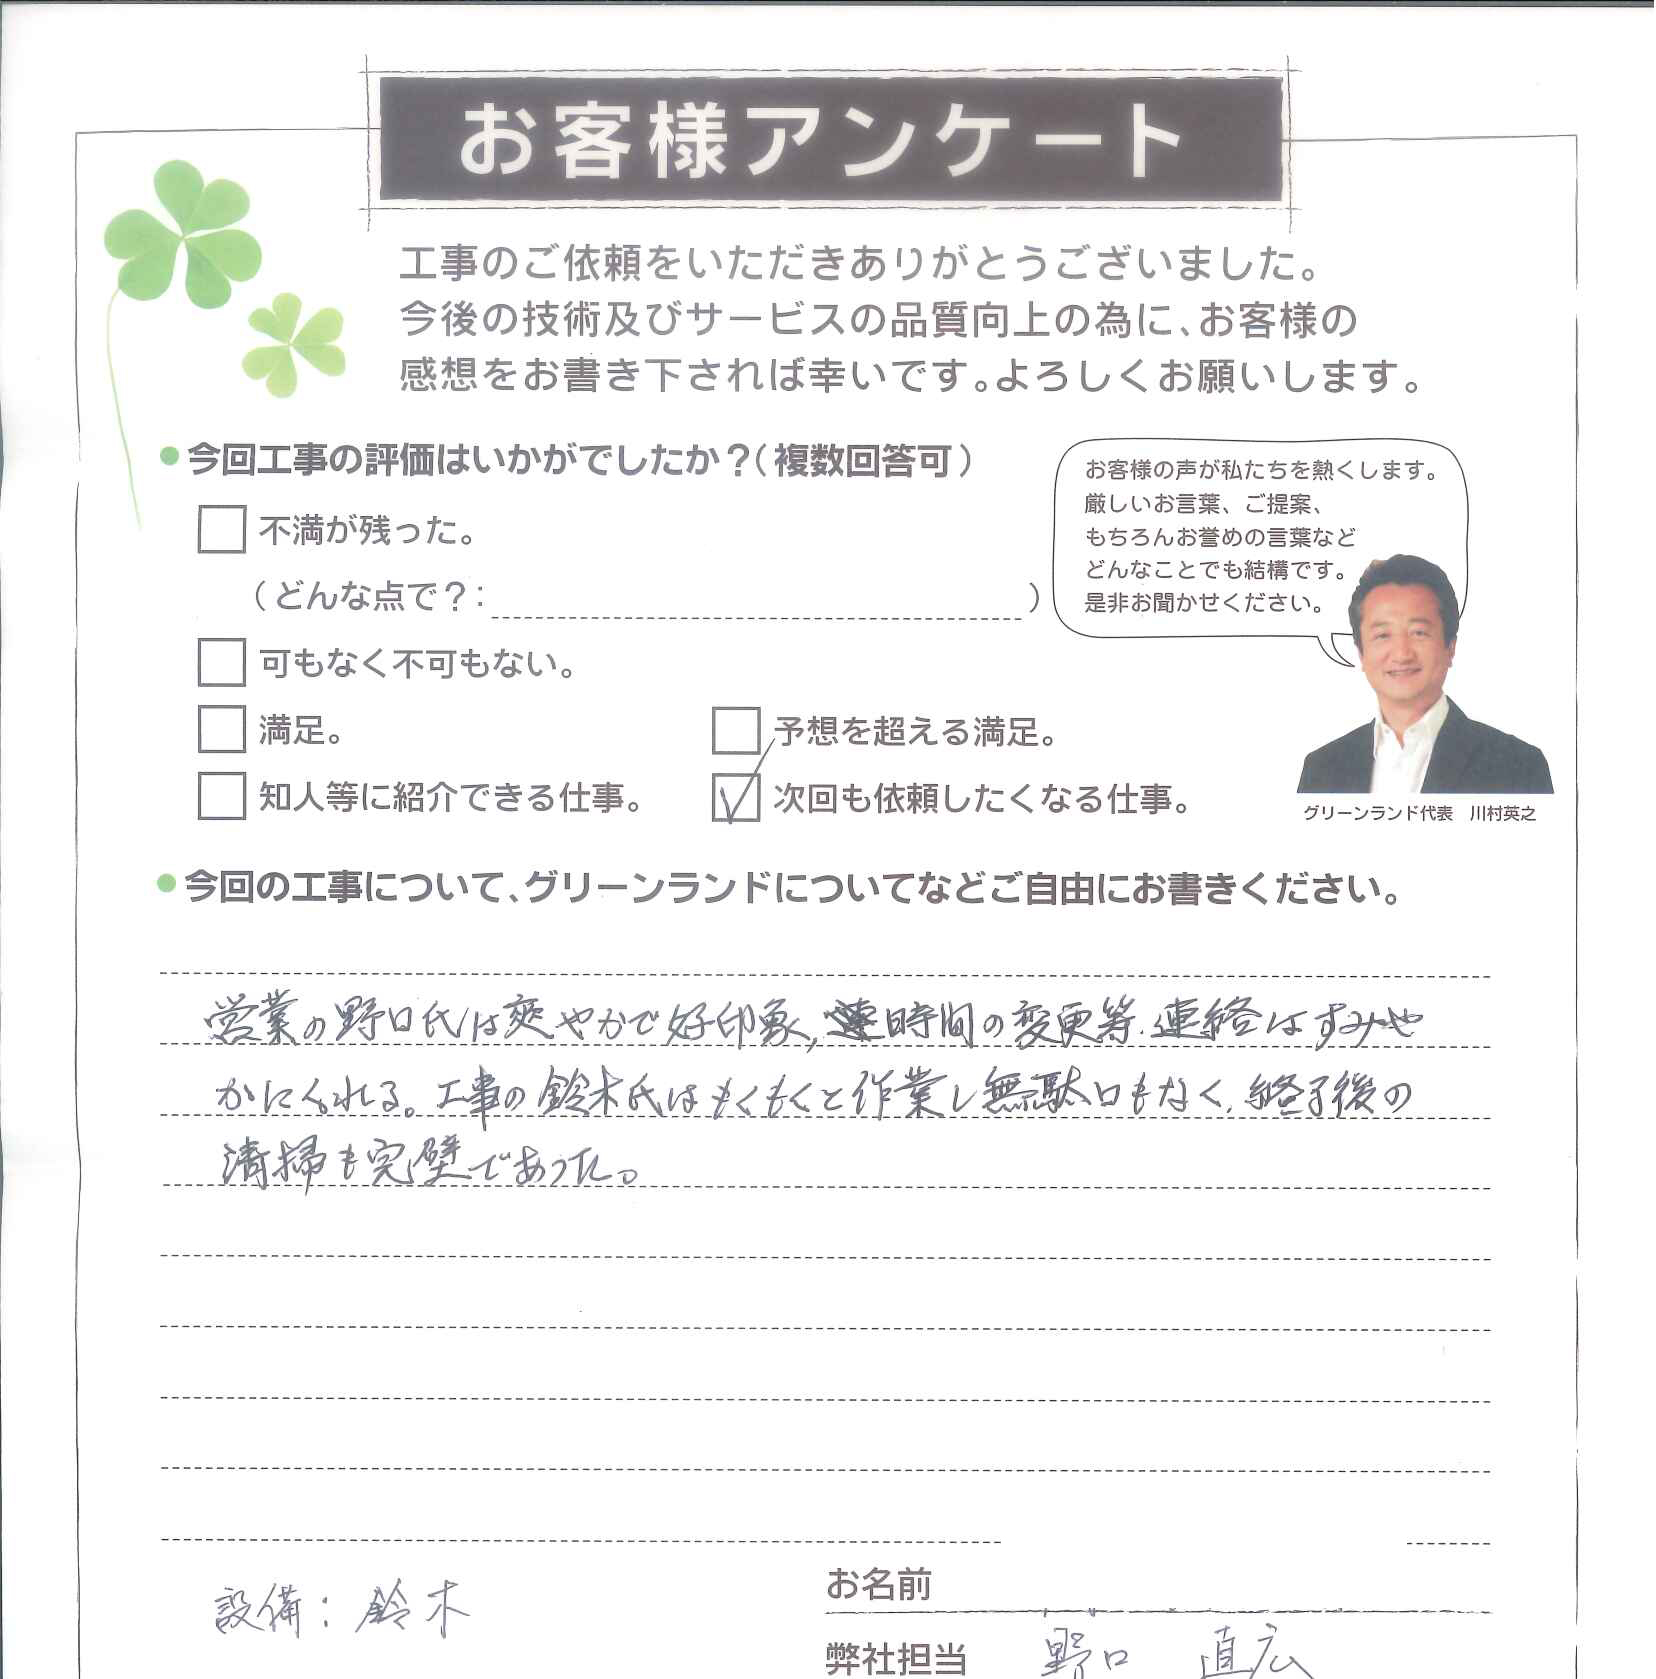 お客様アンケート
工事のご依頼をいただきありがとうございました。
今後の技術及びサービスの品質向上の為に、お客様の
感想をお書き下されば幸いです。よろしくお願いします。
今回工事の評価はいかがでしたか？（複数回答可）
不満が残った。
（どんな点で？：　）
可もなく不可もない。
満足。
予想を超える満足。
知人等に紹介できる仕事。
次回も依頼したくなる仕事。
お客様の声が私たちを熱くします。
厳しいお言葉、ご提案、
もちろんお誉めの言葉など
どんなことでも結構です。
是非お聞かせください。
グリーンランド代表　川村英之
今回の工事について、グリーンランドについてなどご自由にお書きください。
営業の野口氏は爽やかで好印象，日時間の変更等．連絡はすみや
かにくれる。工事の鈴木氏はもくもくと作業し無駄口もなく，終了後の
清掃も完璧であった。
設備：鈴木
お名前
弊社担当　野口　直広